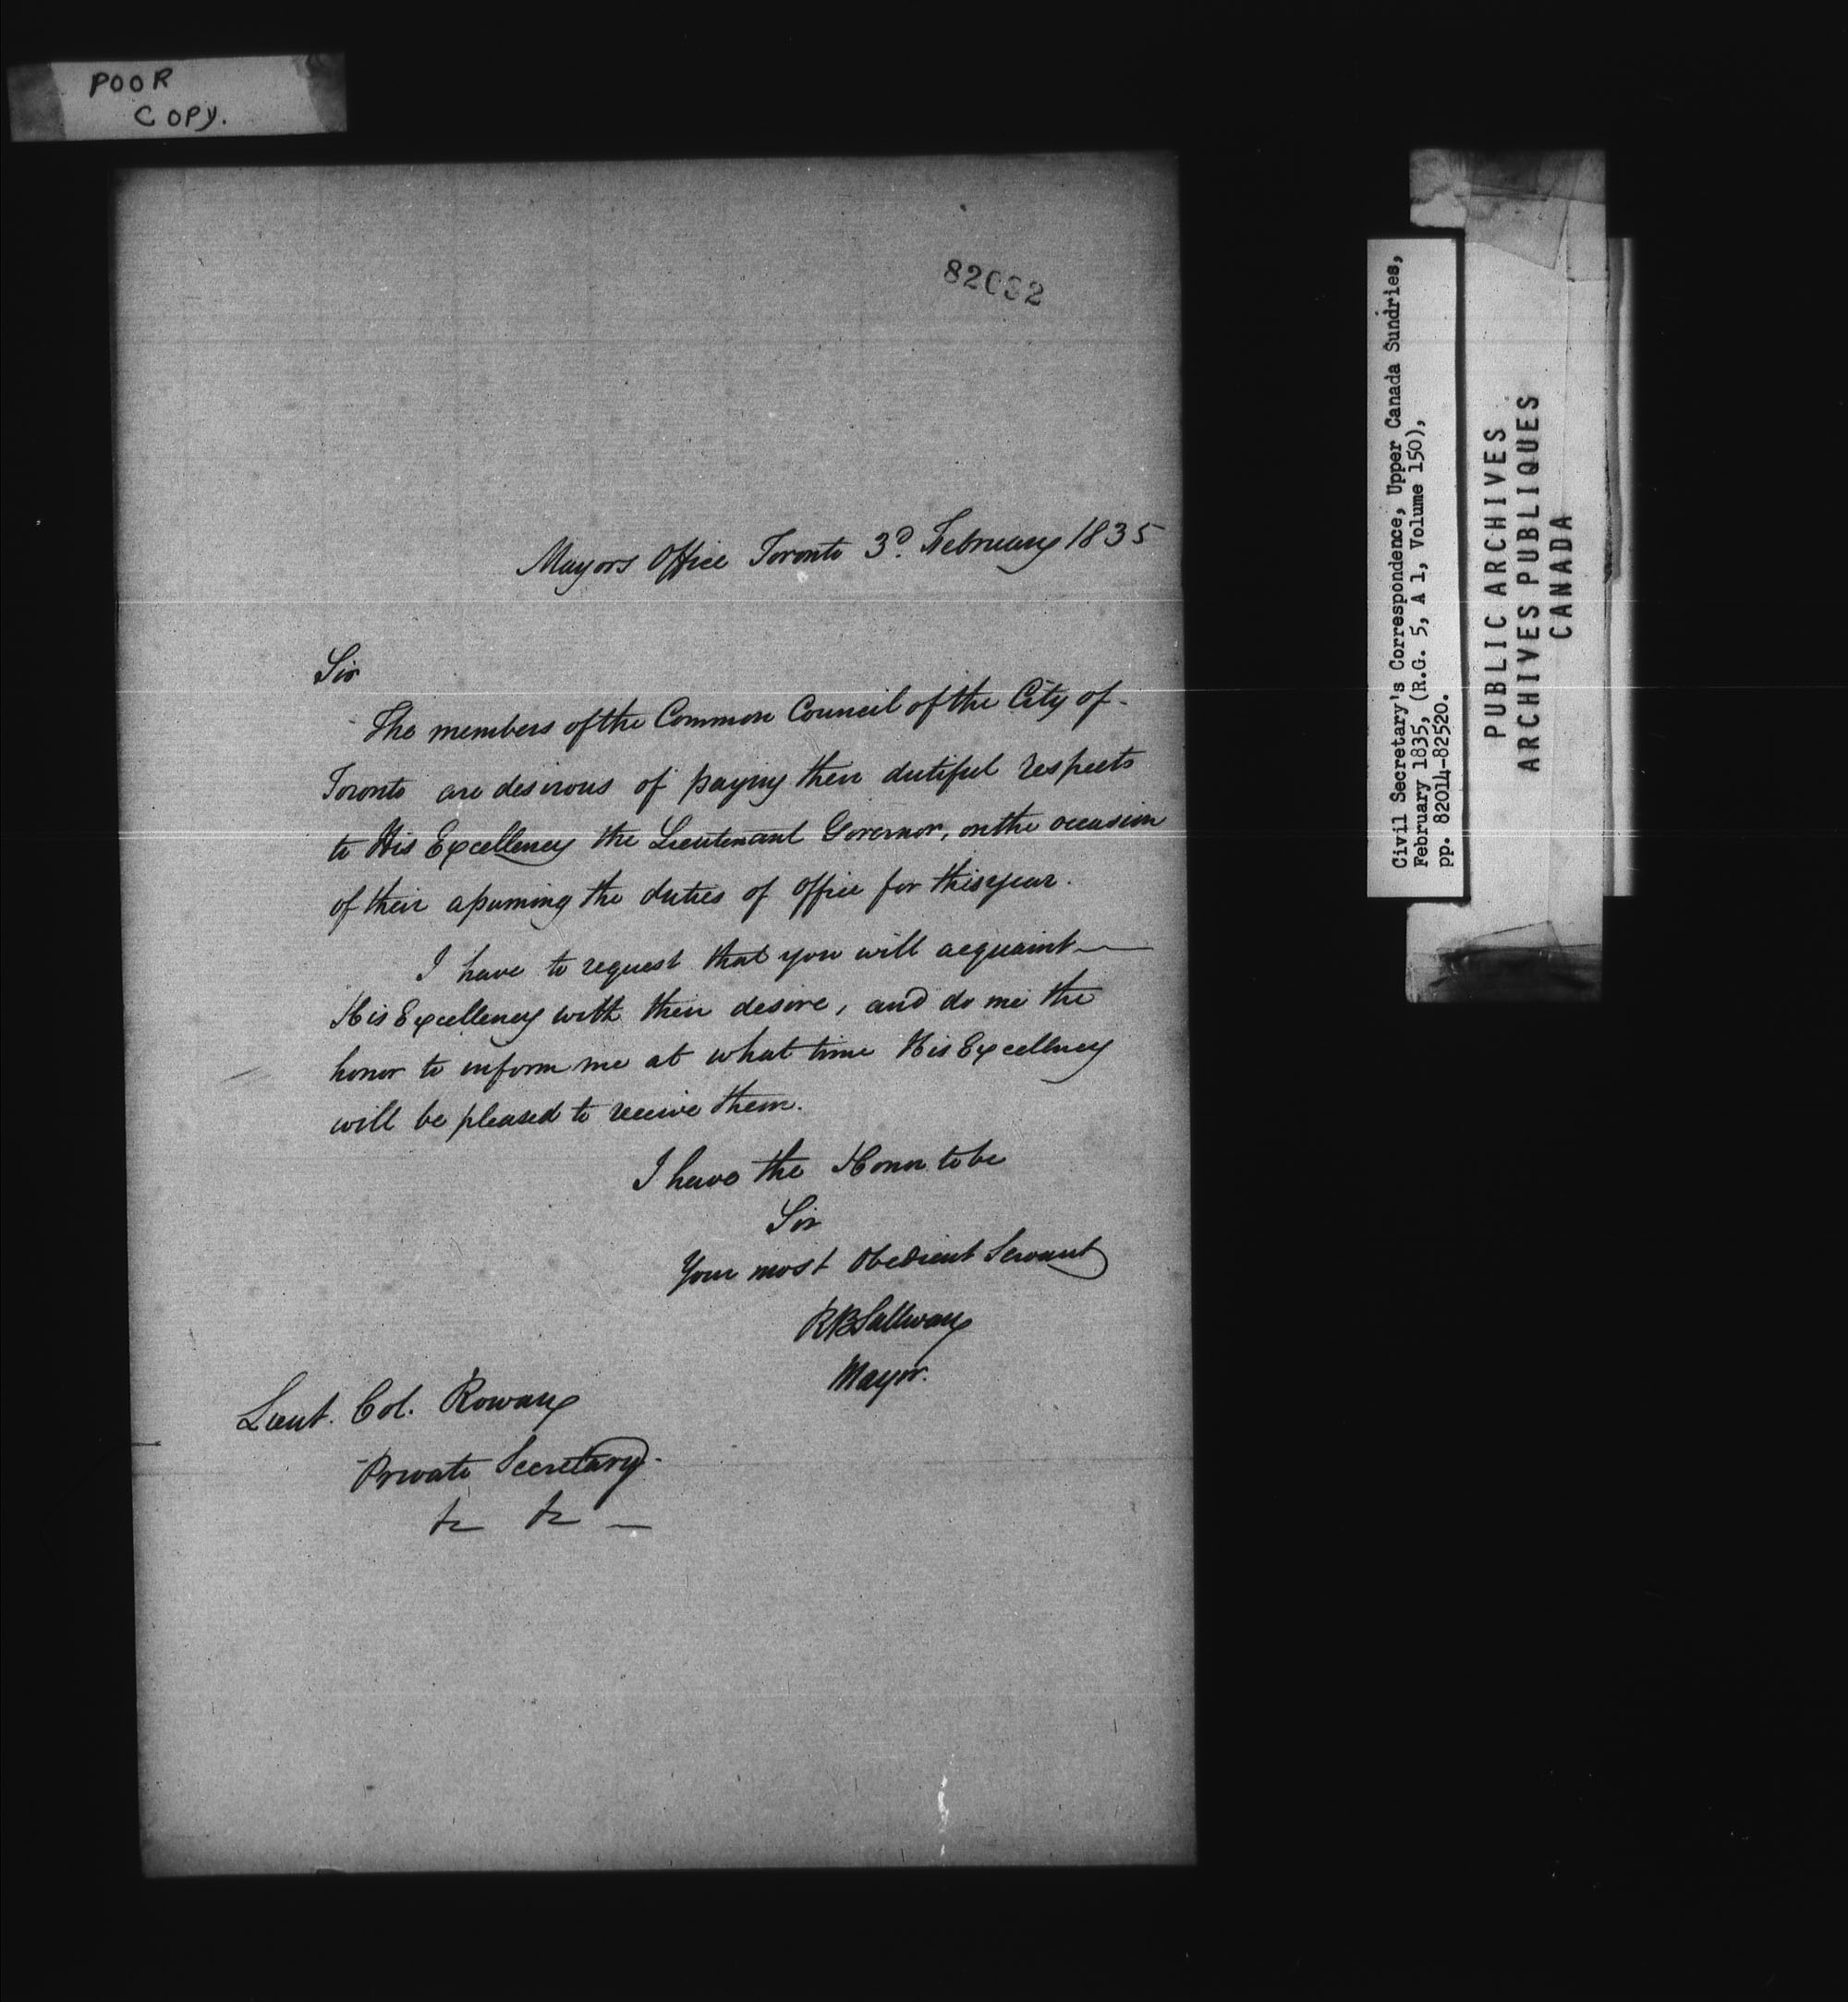 POOR
COPY.
82032
Mayors Office Toronto 3d. February 1835
Sir
The members of the Common Council of the City of
Toronto are desirous of paying their dutiful respects
to His Excellency the Lieutenant Governor, on the occasion
of their assuming the duties of office for this year.
I have to request that you will acquaint
His Excellency with their desire, and do me the
honor to inform me at what time His Excellency
will be pleased to receive them.
I have the Honor to be
Sir
Your most Obedient Servant
RBSullivan
Mayor.
Lieut. Col. Rowan
Private Secretary.
&c &c —
Civil Secretary's Correspondence, Upper Canada Sundries,
February 1835, (R.G. 5, A 1, Volume 150),
pp. 82014-82520.
PUBLIC ARCHIVES
ARCHIVES PUBLIQUES
CANADA